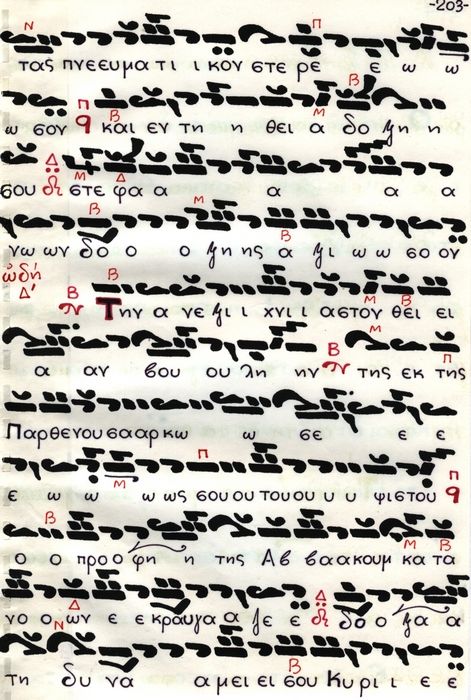 -203-
τας πνεευμα τι ι κον στε ρε ε ω ω
ω σον και εν τη η θει α δο ξη η
σου στε φαα α α α
γω ων δο ο ο ξης α ξι ω ω σο ον
ᾠδή Δ'
Την α νε ξι ι χνι ι αστον θει ει
α αν βου ου λη ην της εκ της
Παρθενου σααρκω ω σε ε ε
ε ω ω ω ως σου ου του ου υ υ ψιστου
ο ο προ ο φη η της Αβ βαακουμ κα τα
νο ο ων ε ε κραυγα α ζε ε δο ο ξα α
τη δυ να α μει ει σου Κυ ρι ι ε ε